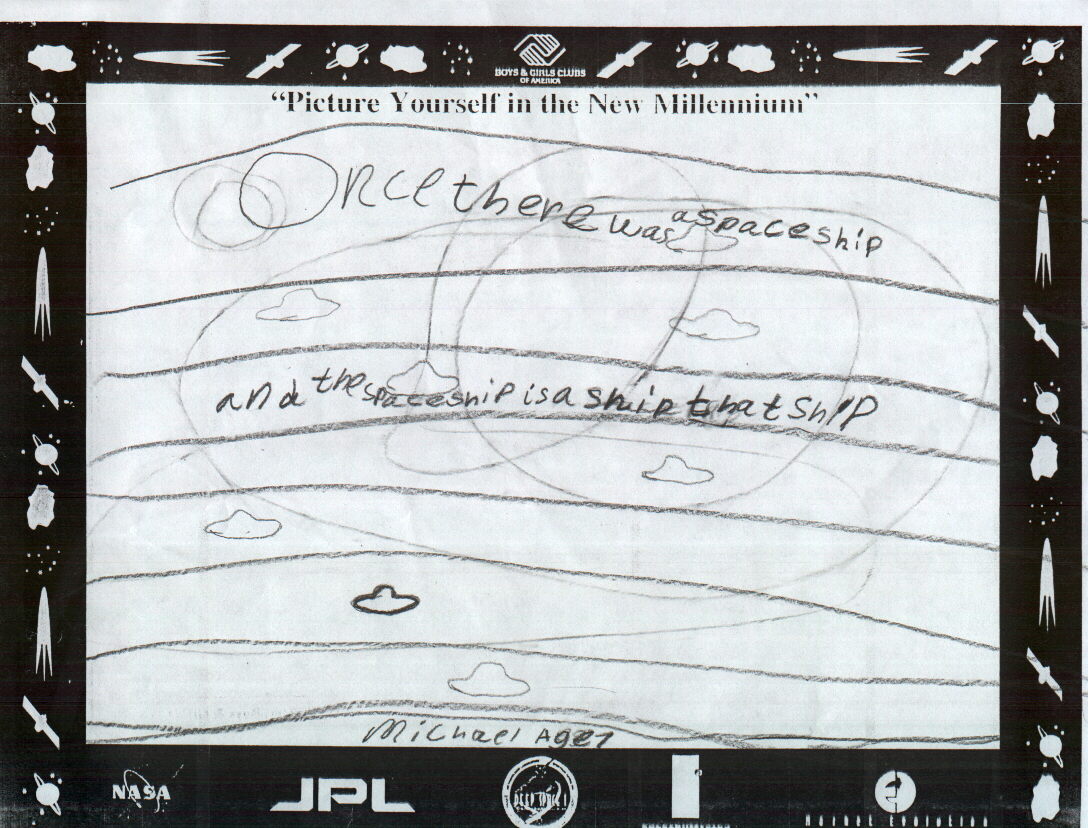 BOYS & GIRLS CLUBS
OF AMERICA
“Picture Yourself in the New Millennium”
Once there was a spaceship
and the spaceship is a ship that ship
Michael Age7
NASA
JPL
DEEP SPACE 1